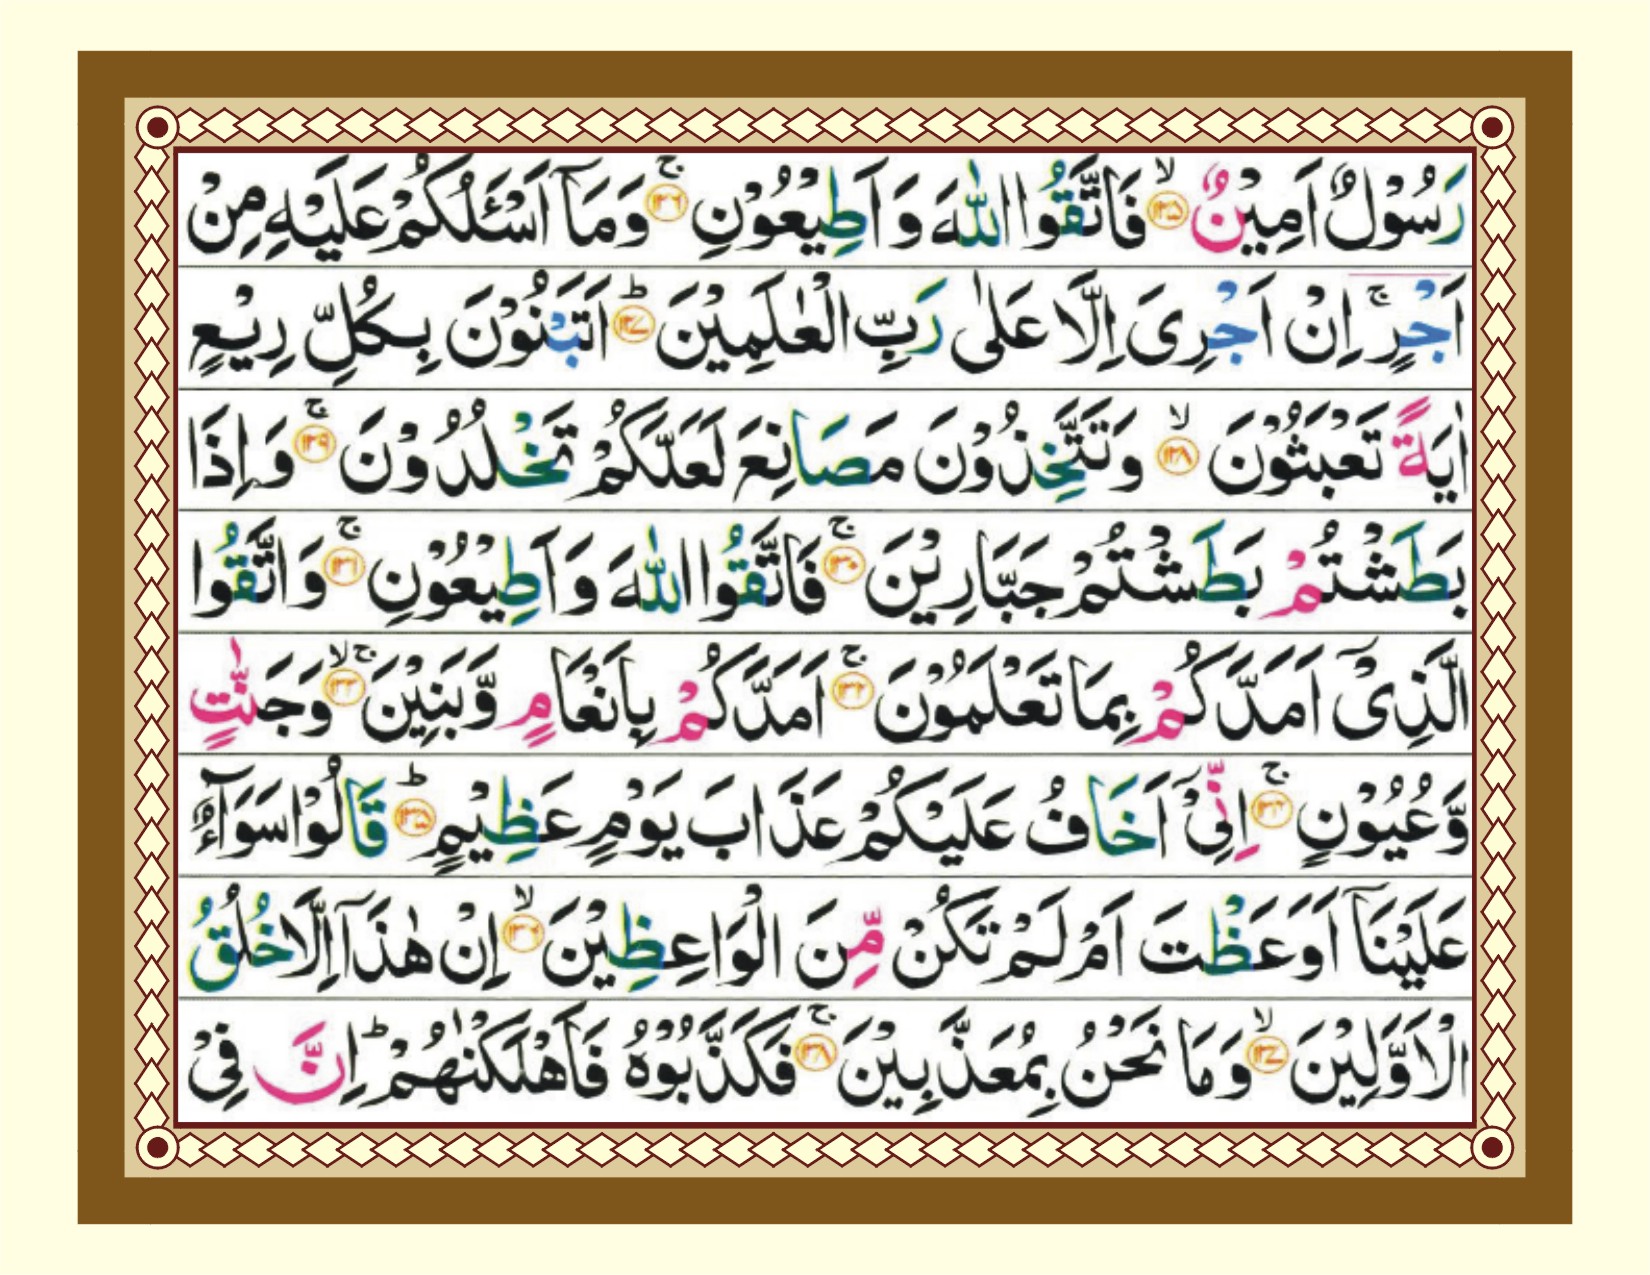 رَسُوْلٌ اَمِيْنٌ ۙ﴿۱۲۵﴾ فَاتَّقُوا اللّٰهَ وَ اَطِيْعُوْنِ ۚ﴿۱۲۶﴾ وَمَاۤ اَسْـَٔلُكُمْ عَلَيْهِ مِنْ
اَجْرٍ ۚ اِنْ اَجْرِىَ اِلَّا عَلٰى رَبِّ الْعٰلَمِيْنَ ؕ﴿۱۲۷﴾ اَتَبْنُوْنَ بِكُلِّ رِيْعٍ
اٰيَةً تَعْبَثُوْنَ ۙ﴿۱۲۸﴾ وَتَتَّخِذُوْنَ مَصَانِعَ لَعَلَّكُمْ تَخْلُدُوْنَ ۚ﴿۱۲۹﴾ وَاِذَا
بَطَشْتُمْ بَطَشْتُمْ جَبَّارِيْنَ ۚ﴿۱۳۰﴾ فَاتَّقُوا اللّٰهَ وَاَطِيْعُوْنِ ۚ﴿۱۳۱﴾ وَاتَّقُوا
الَّذِىْۤ اَمَدَّكُمْ بِمَا تَعْلَمُوْنَ ۚ﴿۱۳۲﴾ اَمَدَّكُمْ بِاَنْعَامٍ وَّبَنِيْنَ ۚۙ﴿۱۳۳﴾ وَجَنّٰتٍ
وَّعُيُوْنٍ ۚ﴿۱۳۴﴾ اِنِّىْۤ اَخَافُ عَلَيْكُمْ عَذَابَ يَوْمٍ عَظِيْمٍ ؕ﴿۱۳۵﴾ قَالُوْا سَوَآءٌ
عَلَيْنَاۤ اَوَعَظْتَ اَمْ لَمْ تَكُنْ مِّنَ الْوَاعِظِيْنَ ۙ﴿۱۳۶﴾ اِنْ هٰذَاۤ اِلَّا خُلُقُ
الْاَوَّلِيْنَ ۙ﴿۱۳۷﴾ وَمَا نَحْنُ بِمُعَذَّبِيْنَ ۚ﴿۱۳۸﴾ فَكَذَّبُوْهُ فَاَهْلَكْنٰهُمْ ؕ اِنَّ فِىْ